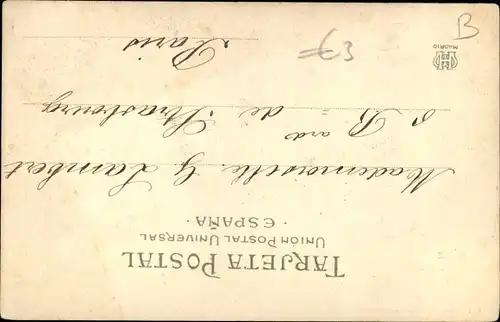 TARJETA POSTAL
UNIÓN POSTAL UNIVERSAL
· ESPAÑA ·
Mademoiselle G Lambert
8 Bard de Strasbourg
Paris
MADRID
B
€3